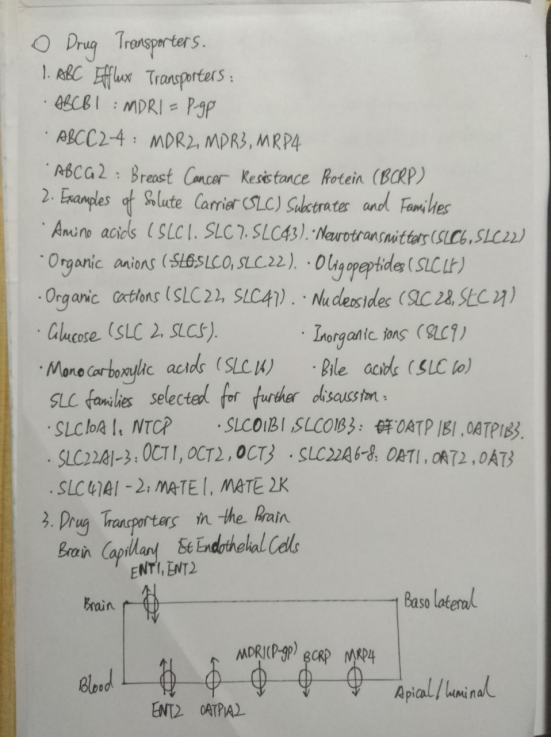 ○ Drug Transporters.
1. ABC Efflux Transporters:
· ABCB1 : MDR1 = P-gp
· ABCC2-4 : MDR2, MDR3, MRP4
· ABCG2 : Breast Cancer Resistance Protein (BCRP)
2. Examples of Solute Carrier (SLC) Substrates and Families
· Amino acids (SLC1. SLC7. SLC43). · Neurotransmitters (SLC6, SLC22)
· Organic anions (SLCO, SLC22). · Oligopeptides (SLC15)
· Organic cations (SLC22, SLC47). · Nucleosides (SLC28, SLC29)
· Glucose (SLC 2, SLC5). · Inorganic ions (SLC9)
· Monocarboxylic acids (SLC16) · Bile acids (SLC10)
SLC families selected for further discussion:
· SLC10A1, NTCP · SLCO1B1, SLCO1B3: OATP1B1, OATP1B3.
· SLC22A1-3: OCT1, OCT2, OCT3 · SLC22A6-8: OAT1, OAT2, OAT3
· SLC47A1-2: MATE1, MATE2K
3. Drug Transporters in the Brain
Brain Capillary Endothelial Cells
ENT1, ENT2
Brain Basolateral
MDR1(P-gp) BCRP MRP4
Blood Apical/luminal
ENT2 OATP1A2